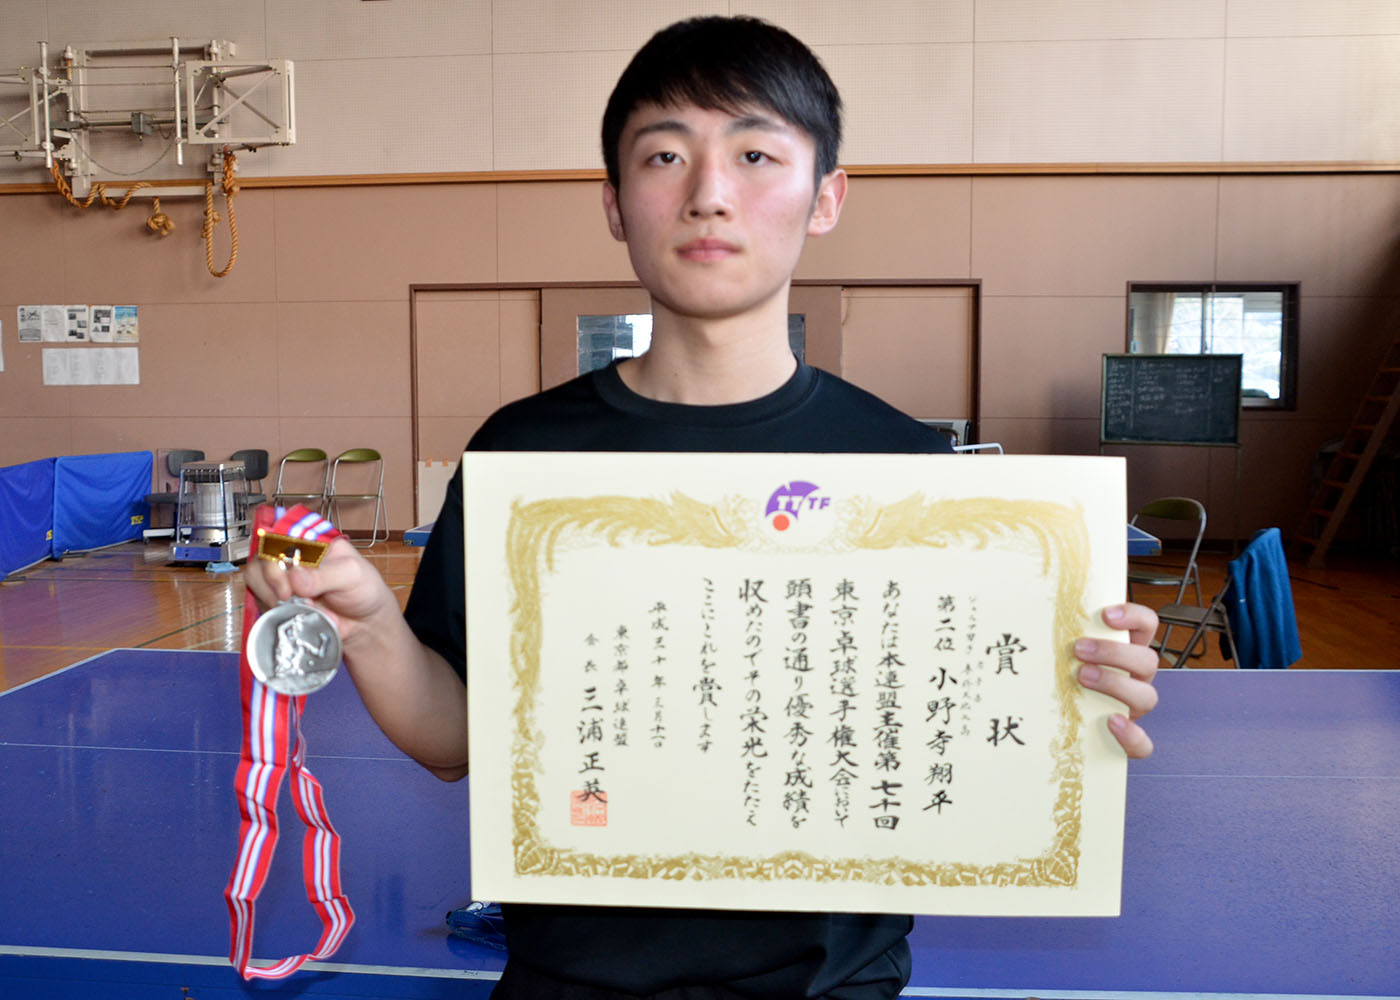 TTTF
賞状
第二位 小野寺翔平
あなたは本連盟主催第七十回
東京卓球選手権大会において
頭書の通り優秀な成績を
収めたのでその栄光をたたえ
ここにこれを賞します
平成三十年三月十一日
東京都卓球連盟
会長 三浦正英